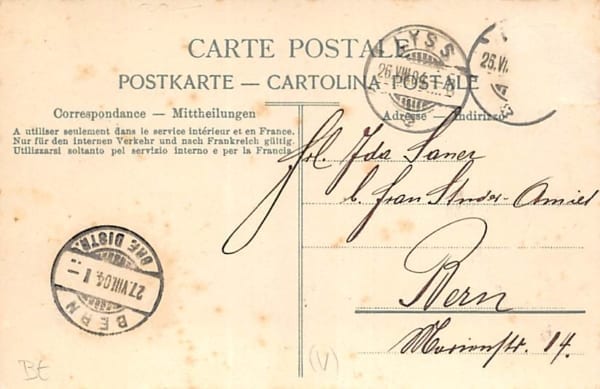 CARTE POSTALE
POSTKARTE — CARTOLINA POSTALE
Correspondance — Mittheilungen
Adresse — Indirizzo
A utiliser seulement dans le service intérieur et en France.
Nur für den internen Verkehr und nach Frankreich gültig.
Utilizzarsi soltanto pel servizio interno e per la Francia.
LYSS
26.VIII.04
26.VI
Frl. Ida Saner
b. Frau Studer-Amiet
Bern
Marienstr. 14.
BERN
27.VIII.04
BRE DISTR.
BE
(V)